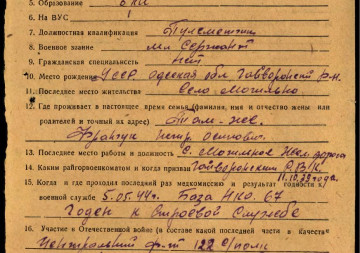 5. Образование 6 кл
6. На ВУС 1
7. Должностная квалификация Пулеметчик
8. Военное звание мл сержант
9. Гражданская специальность нет
10. Место рождения УССР Одесская обл Гайворонский р-н
11. Последнее место жительства село Могильно
12. Где проживает в настоящее время семья (фамилия, имя и отчество жены или
родителей и точный их адрес) Там-же.
13. Последнее место работы и должность с. Могильное Жел дорога
14. Каким райгорвоенкоматом и когда призван Гайворонским РВК
11.10.39 года
15. Когда и где проходил последний раз медкомиссию и результат годности к
военной службе 5.05.44г. База НКО. 67
Годен к строевой службе
16. Участие в Отечественной войне (в составе какой последней части в качестве
Центральный ф-т 122 с/полк